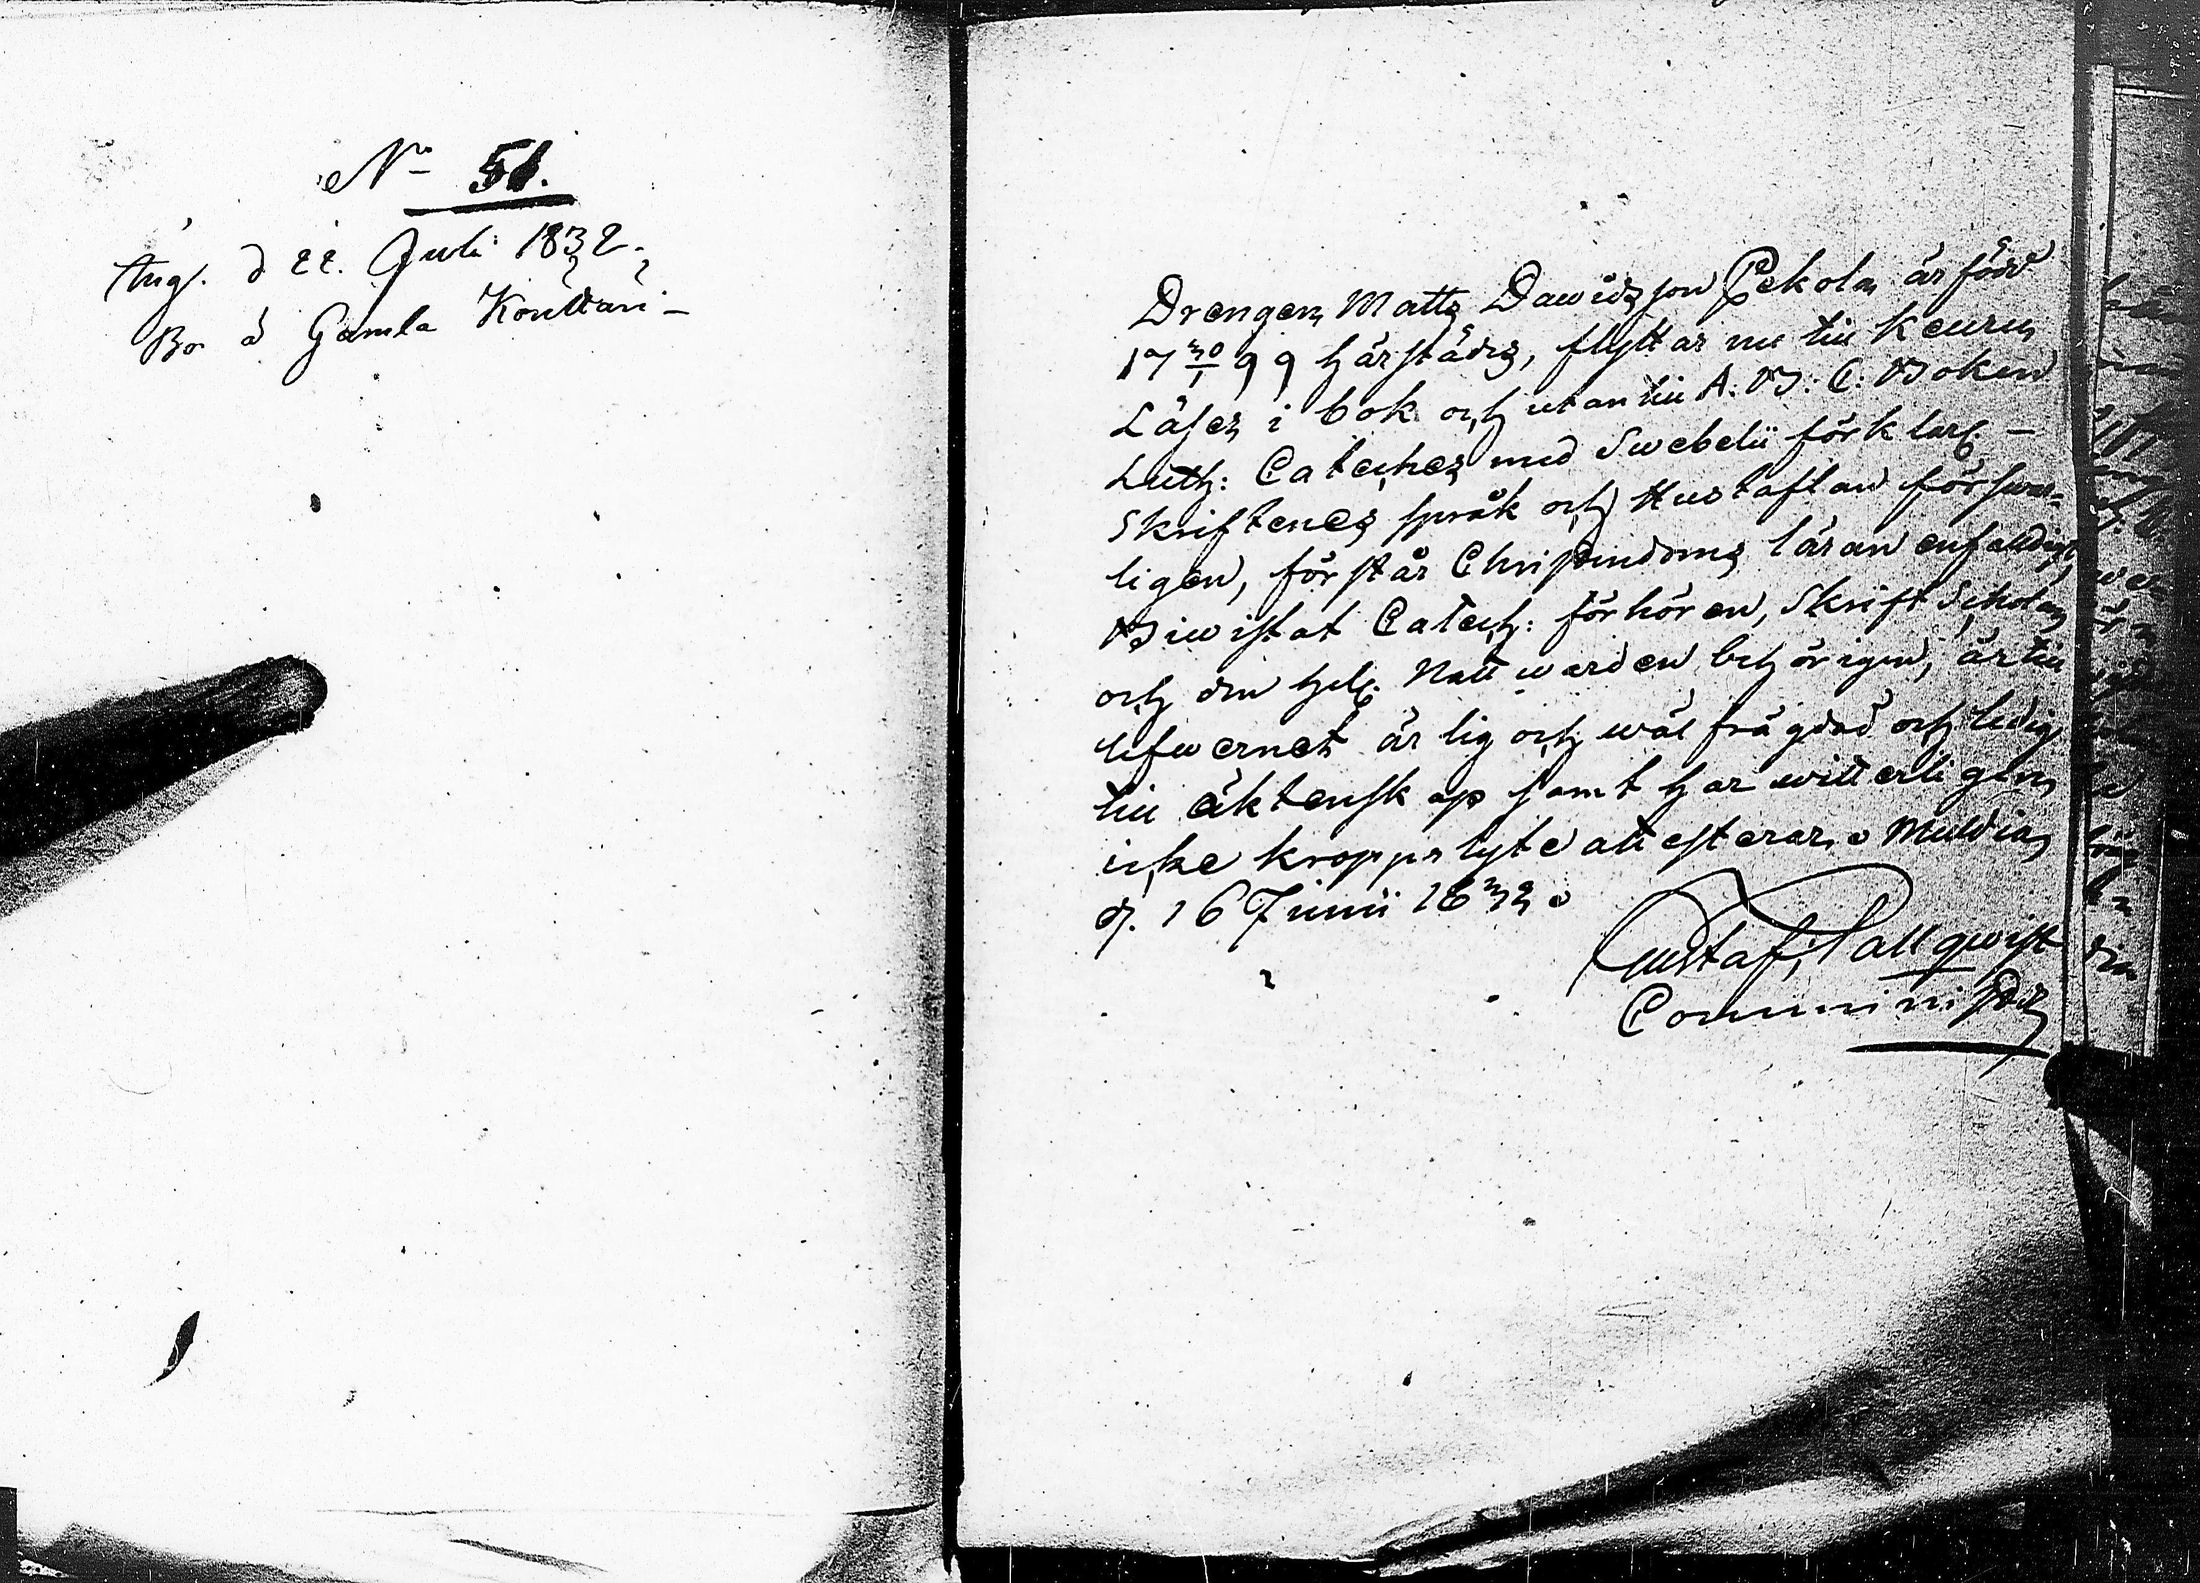 No 51.
Ang. d 22. Juli 1832.
Bor å Gamla Kouttari –
Drengen Matts Dawidsson Pekola är född
17 30/1 99 härstädes, flyttar nu till Keuru
Läser i bok och utantill A. B. C. Boken
Luth: Cateches med Swebelii förklar. –
Skriftenes språk och Hustaflan förswar-
ligen, förstår Christendoms läran enfaldigt,
Biwistat Catech: förhören, Skrift Scholan
och den hel. Nattwarden behörigen, är till
lefwernet ärlig och wäl frägdad och ledig
till äktenskap samt har witterligen
icke kroppslyte attesterar. Muldia
d. 16 Junii 1832.
Gustaf Pallqwist
Comminister